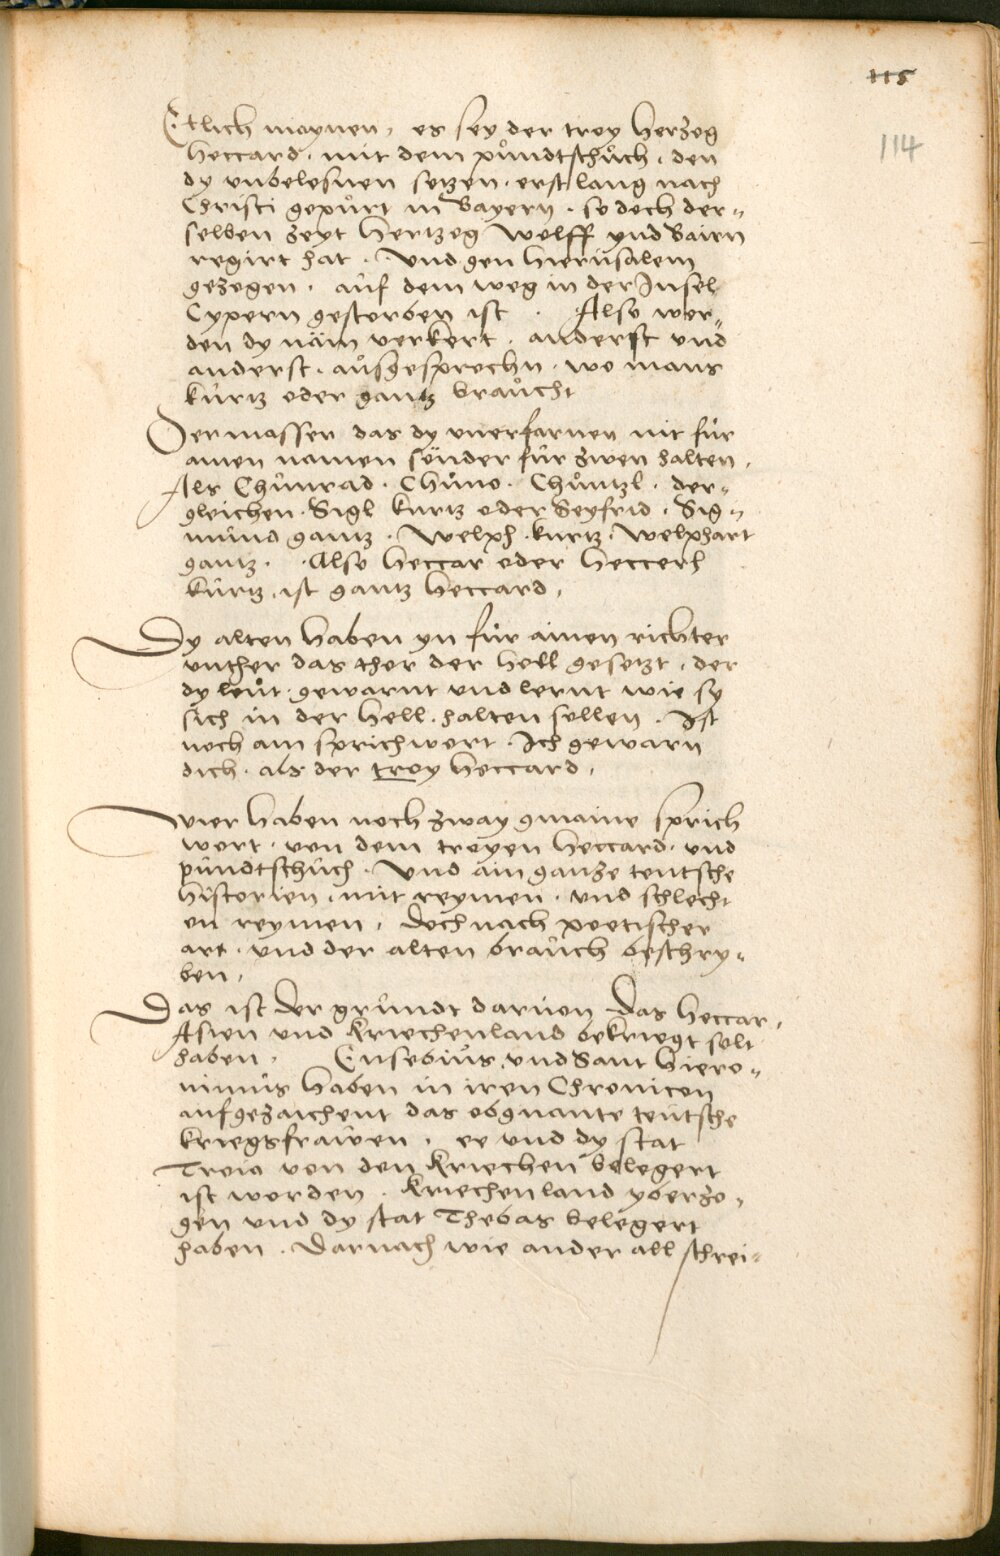 115
114
Etlich maynen, es sey der trey Herzog
Heccard. mit dem půndtschůch. den
dy vnbelesnen setzen. erst lang nach
Christi gepůrt in Bayern. so doch der„
selben zeyt Hertzog Welff vnd Bairn
regirt hat. Vnd gen Hierůsalem
gezogen. aůf dem weg in der Insel
Cypern gestorben ist. Also wer„
den dy näm verkert. anderst vnd
anderst. aůsgesprochn. wo mans
kůrtz oder gantz braůcht
Dermassen das dy vnerfarnen nit für
ainen namen sönder für zwen halten,
Als Chůnrad. Chůno. Chůntzl. der„
gleichen. Sigl kurtz oder Seyfrid. Sig„
mund gantz. Welph. kurtz. Welphart
gantz. Also Heccar oder Heccerl
kůrtz. ist gantz Heccard,
Dy alten haben yn für ainen richter
vnther das thor der hell gesetzt, der
dy leůt. gewarnt vnd lernt wie sy
sich in der hell. halten sollen. Ist
noch ain sprichwort. Ich gewarn
dich. als der troy Heccard,
Wier haben noch zway gmaine sprich
wort. von dem troyen Heccard. vnd
pündtschůch. Vnd ain ganze teutsche
historien, mit reymen. vnd schlecht
en reymen, doch nach poetischer
art. vnd der alten braůch beschry„
ben,
Das ist der grůndt darůon Das Heccar,
Asien vnd Kriechenland bekriegt solt
haben, Eusebiůs vnd Sant Hiero„
nimůs haben in iren Chronicon
aufgezaichent das obgnante teutsche
kriegsfraůen, ee vnd dy stat
Troia von den Kriechen belegert
ist worden. Kriechenland yberzo„
gen vnd dy stat Thebas belegert
haben. Darnach wie ander all schrei„